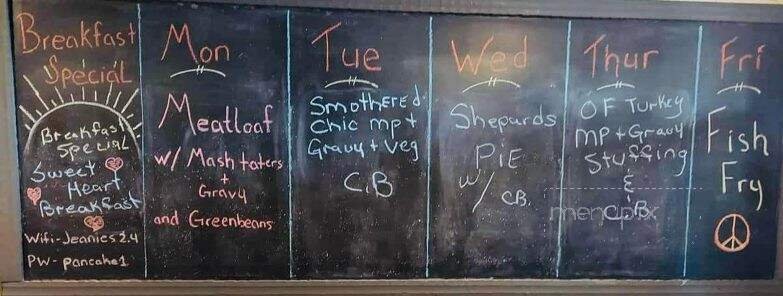 Breakfast
Special
Breakfast
Special
Sweet
Heart
Breakfast
Wifi-Jeanies 2.4
PW- pancake1
Mon
Meatloaf
w/ Mash taters
+
Gravy
and Greenbeans
Tue
Smothered
Chic mp+
Gravy + veg
C.B
Wed
Shepards
PiE
w/ CB.
Thur
OF Turkey
mp + Gravy
Stuffing
&
C.B
menupix
Fri
Fish
Fry